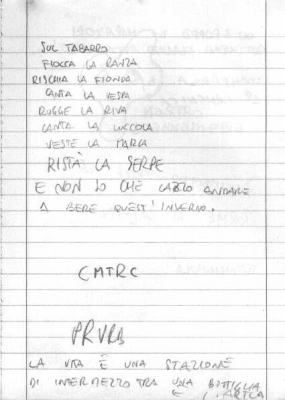 SUL TABARRO
FIOCCA LA PANZA
RISCHIA LA FIONDA
CANTA LA VESPA
RUGGE LA RIVA
CANTA LA LUCCOLA
VESTE LA MARCA
RISTÀ LA SERPE
E NON SO CHE CAZZO ANDARE
A BERE QUEST'INVERNO.
CMTRC
PRVRB
LA VITA È UNA STAZIONE
DI INTERMEZZO TRA UNA BOTTIGLIA
E L'ALTRA